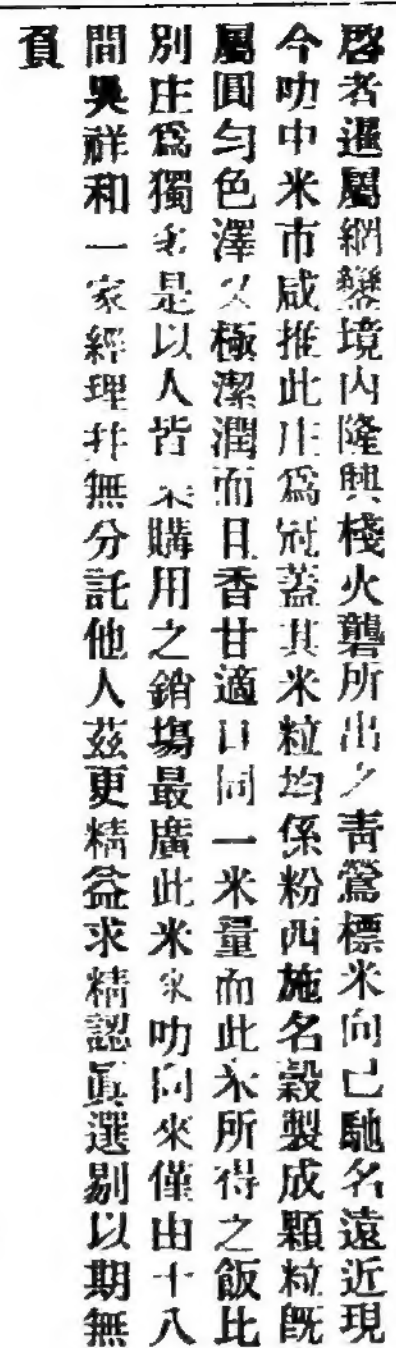 啓者暹屬網鑾境內隆興棧火礱所出之青鶯標米向已馳名遠近現
今叻中米市咸推此庄爲冠蓋其米粒均係粉西施名穀製成顆粒旣
屬圓勻色澤又極潔潤而且香甘適口同一米量而此米所得之飯比
別庄爲獨多是以人皆樂購用之銷塲最廣此米來叻向來僅由十八
間奧祥和一家經理幷無分託他人茲更精益求精認眞選剔以期無
負